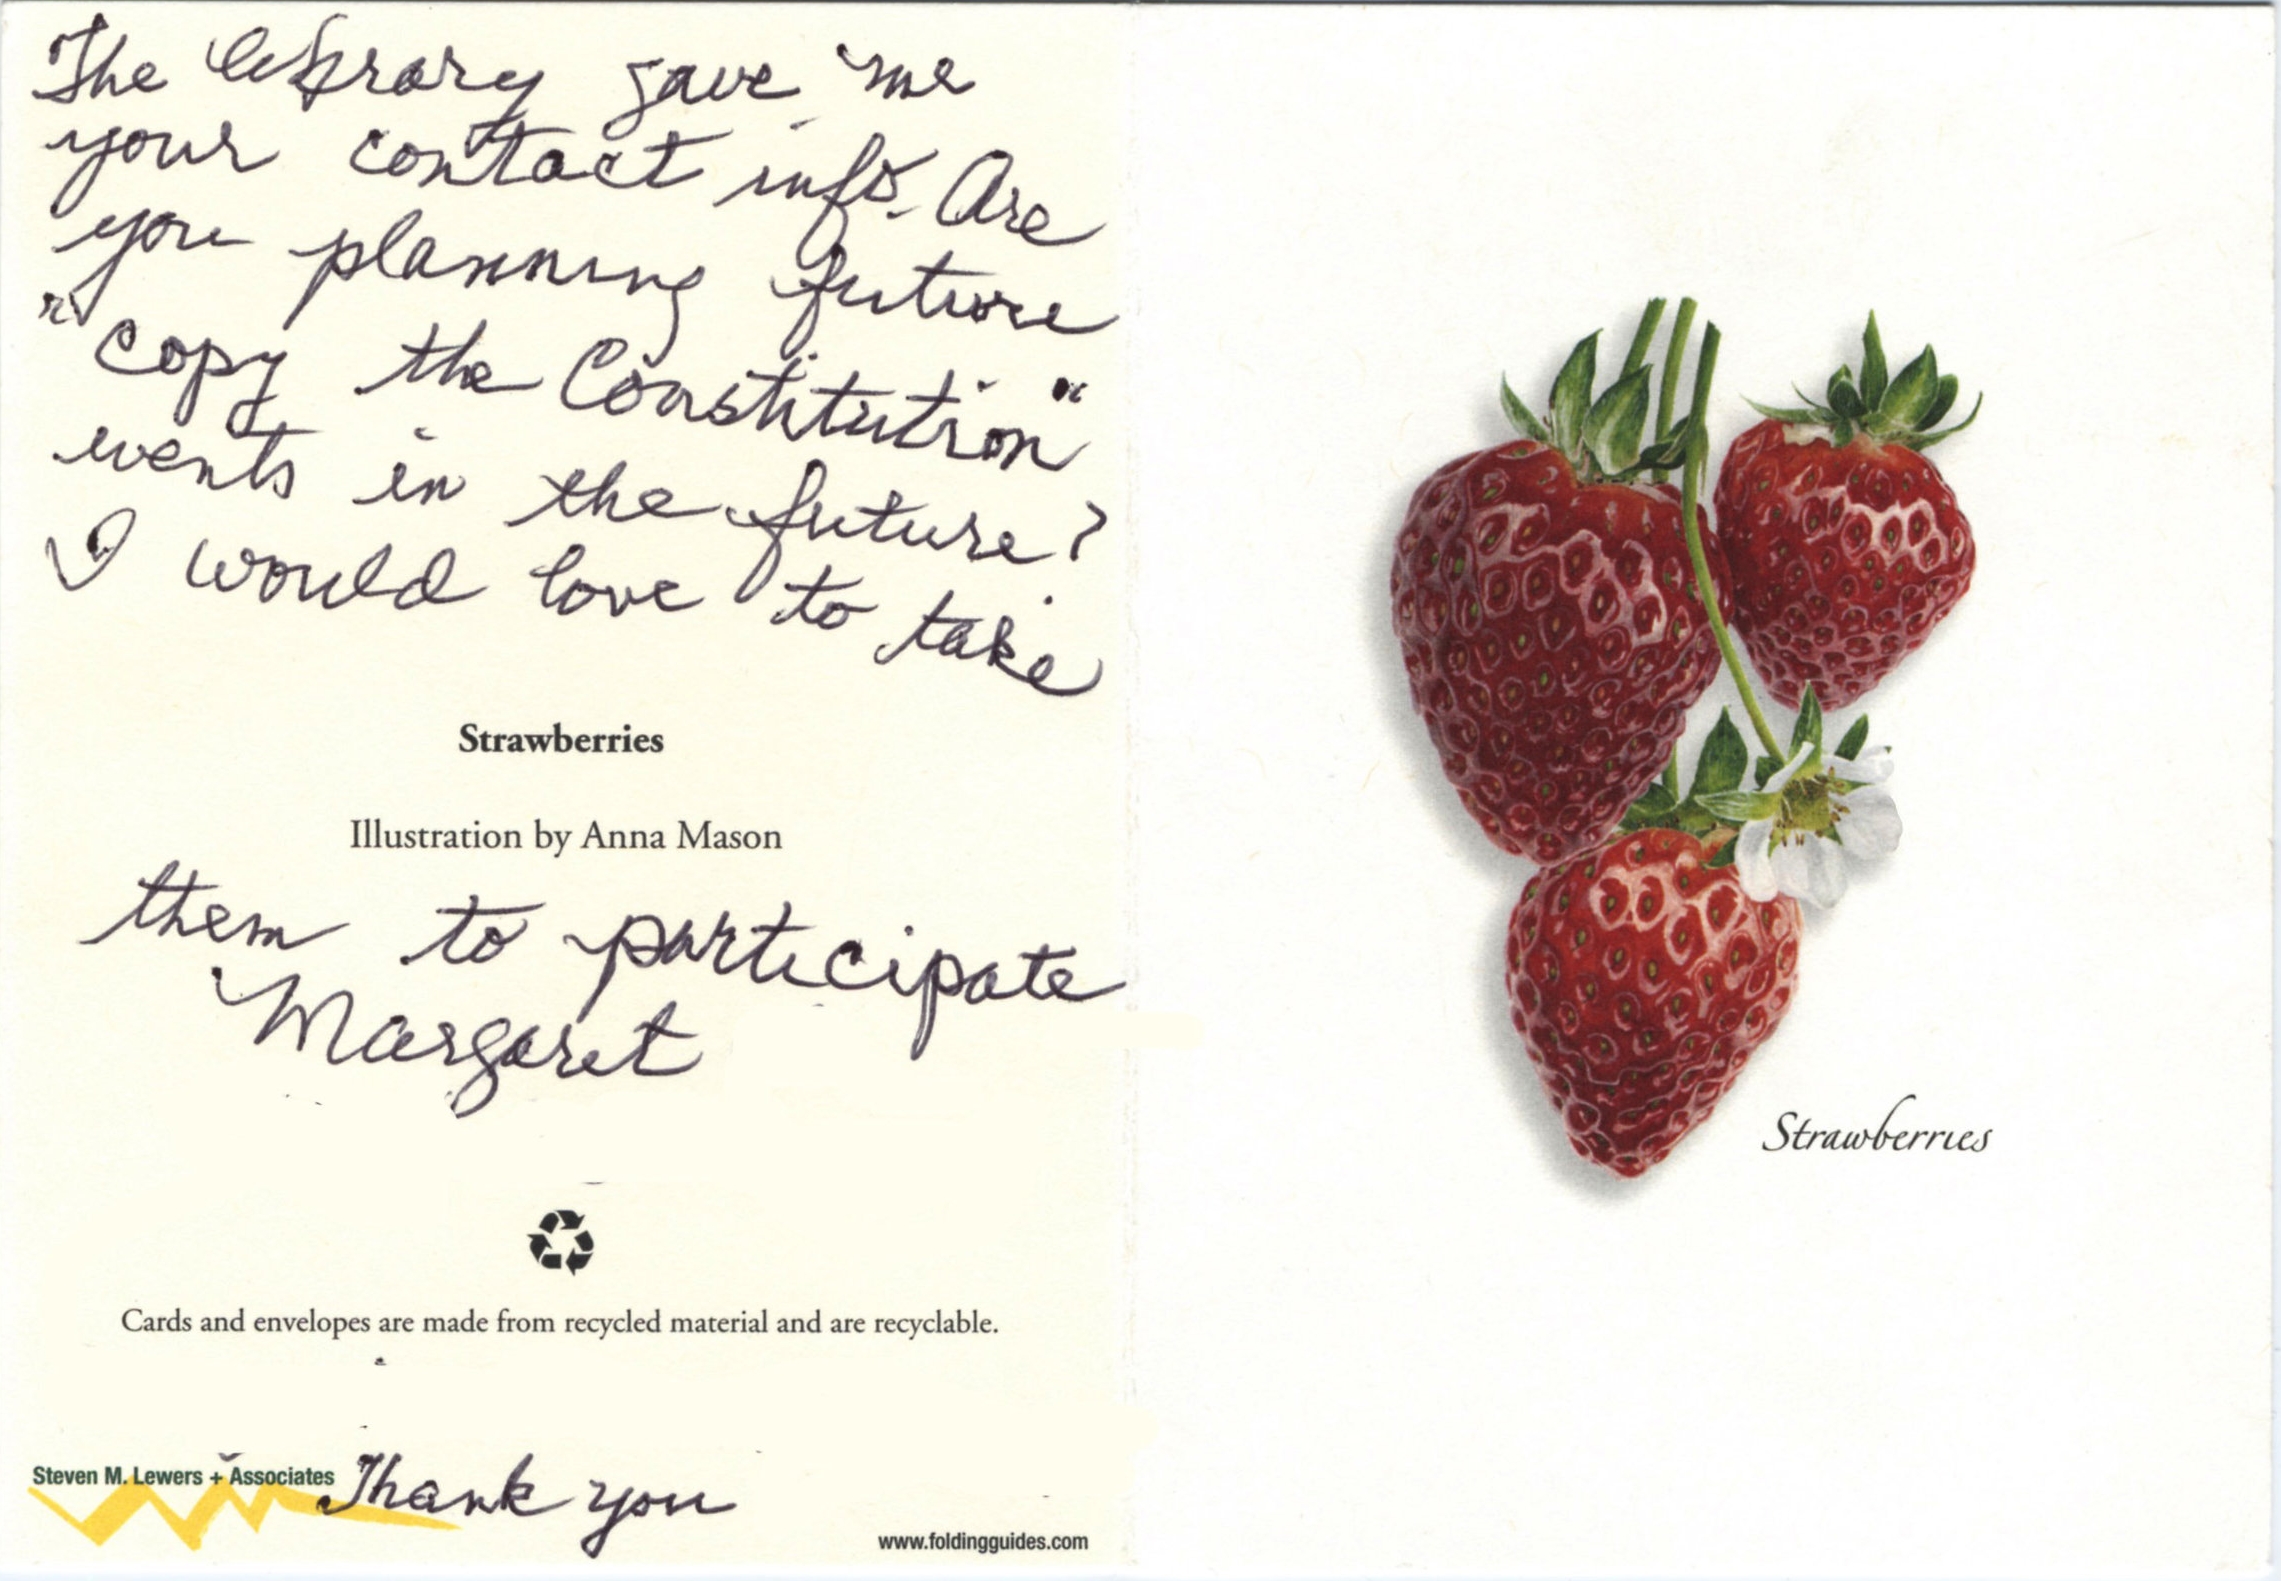 The library gave me
your contact info. Are
you planning future
"Copy the Constitution"
events in the future?
I would love to take
Strawberries
Illustration by Anna Mason
them to participate
Margaret
Cards and envelopes are made from recycled material and are recyclable.
Steven M. Lewers + Associates
Thank you
www.foldingguides.com
Strawberries